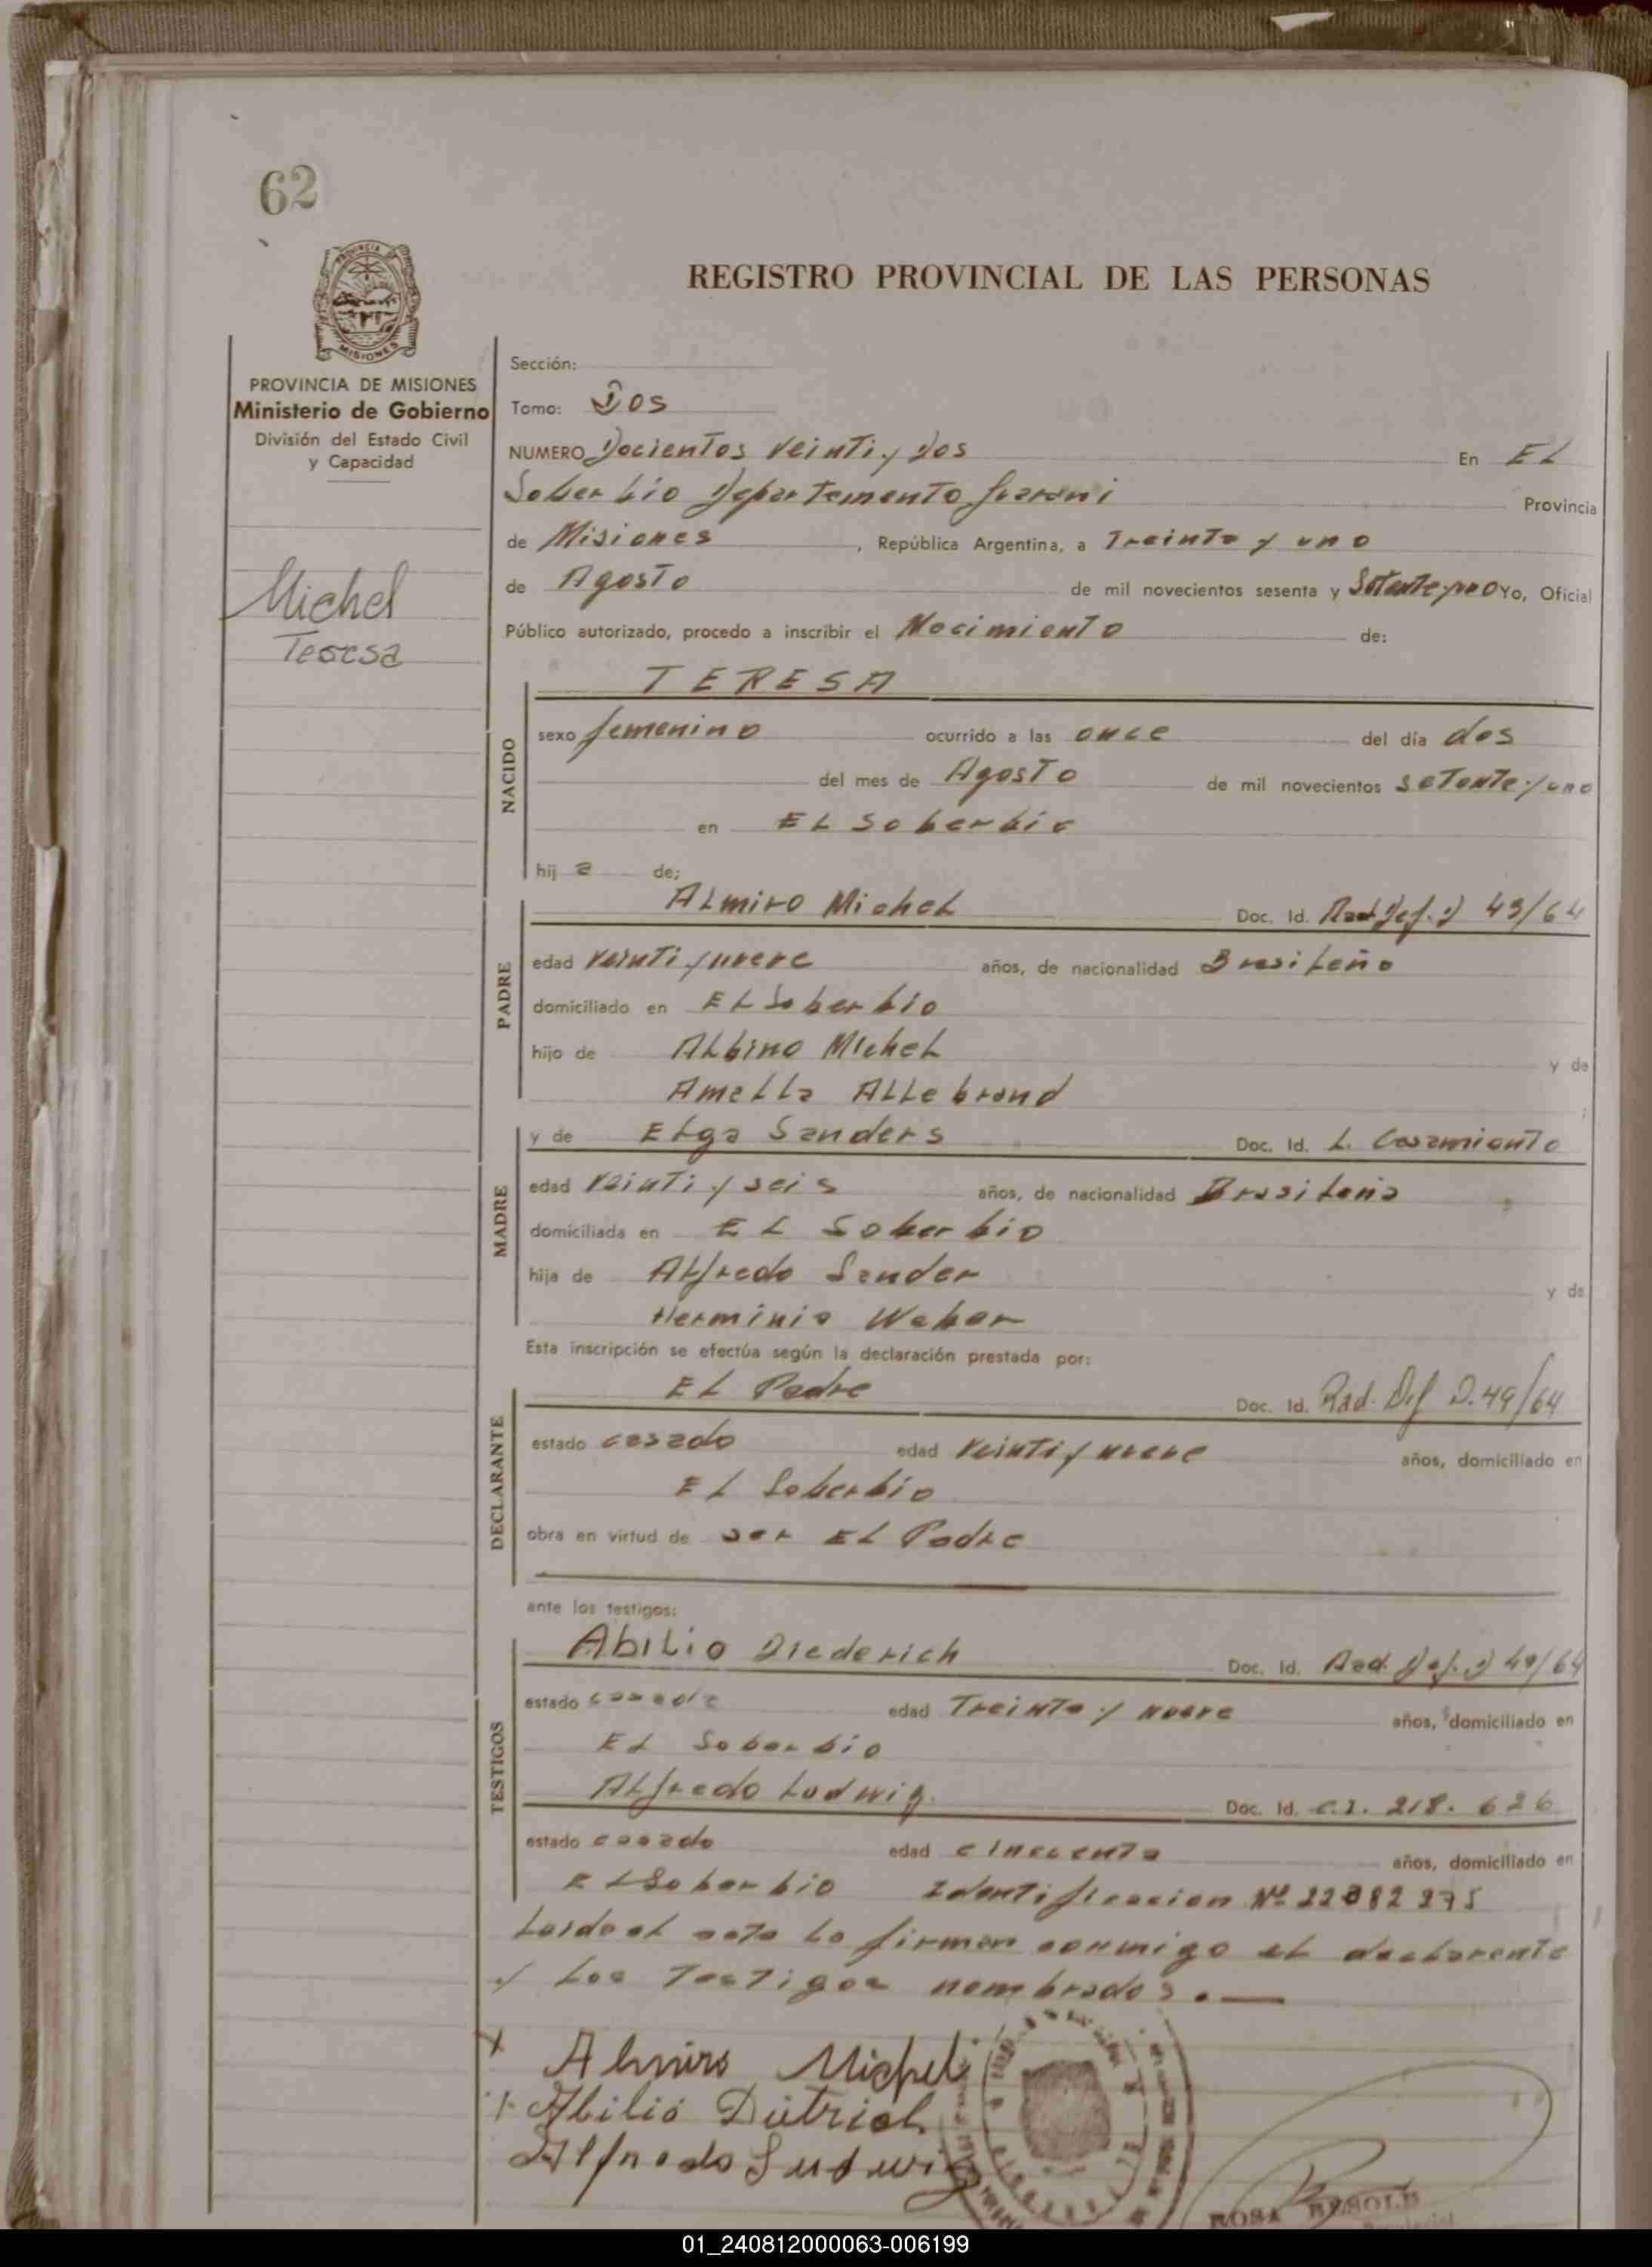 62
PROVINCIA DE MISIONES
Ministerio de Gobierno
División del Estado Civil
y Capacidad
Michel
Teresa
REGISTRO PROVINCIAL DE LAS PERSONAS
Sección:
Tomo: Dos
NUMERO Docientos Veinti y Dos En EL
Soberbio Departamento Guarani Provincia
de Misiones, República Argentina, a Treinta y uno
de Agosto de mil novecientos sesenta y Setenta y uno Yo, Oficial
Público autorizado, procedo a inscribir el Nacimiento de:
TERESA
NACIDO
sexo femenino ocurrido a las once del día dos
del mes de Agosto de mil novecientos setenta y uno
en EL Soberbio
hij a de;
PADRE
ALmiro MicheL Doc. Id. Rad. Def. D 49/64
edad Veinti y nueve años, de nacionalidad BrasiLeño
domiciliado en EL Soberbio
hijo de ALbino MicheL y de
AmeLLa ALLebrand ;
MADRE
y de ELga Sanders Doc. Id. L. Casamiento
edad Veinti y seis años, de nacionalidad BrasiLeña
domiciliada en EL Soberbio
hija de ALfredo Sander y de
Herminia Weber
Esta inscripción se efectúa según la declaración prestada por:
DECLARANTE
EL Padre Doc. Id. Rad. Def D. 49/64
estado casado edad Veinti y nueve años, domiciliado en
EL Soberbio
obra en virtud de ser EL Padre
ante los testigos:
TESTIGOS
AbiLio Diederich Doc. Id. Rad. Def. D 40/64
estado casado edad Treinta y nueve años, domiciliado en
EL Soberbio
ALfredo Ludwig. Doc. Id. C.I. 218.626
estado casado edad cincuenta años, domiciliado en
EL Soberbio Identificacion Nº 22082275
Leido el acta Lo firman conmigo eL decLarante
y Los Testigos nombrados.—
Almiro Michel
Abilio Dietrich
Alfredo Ludwig
ROSA
01_240812000063-006199